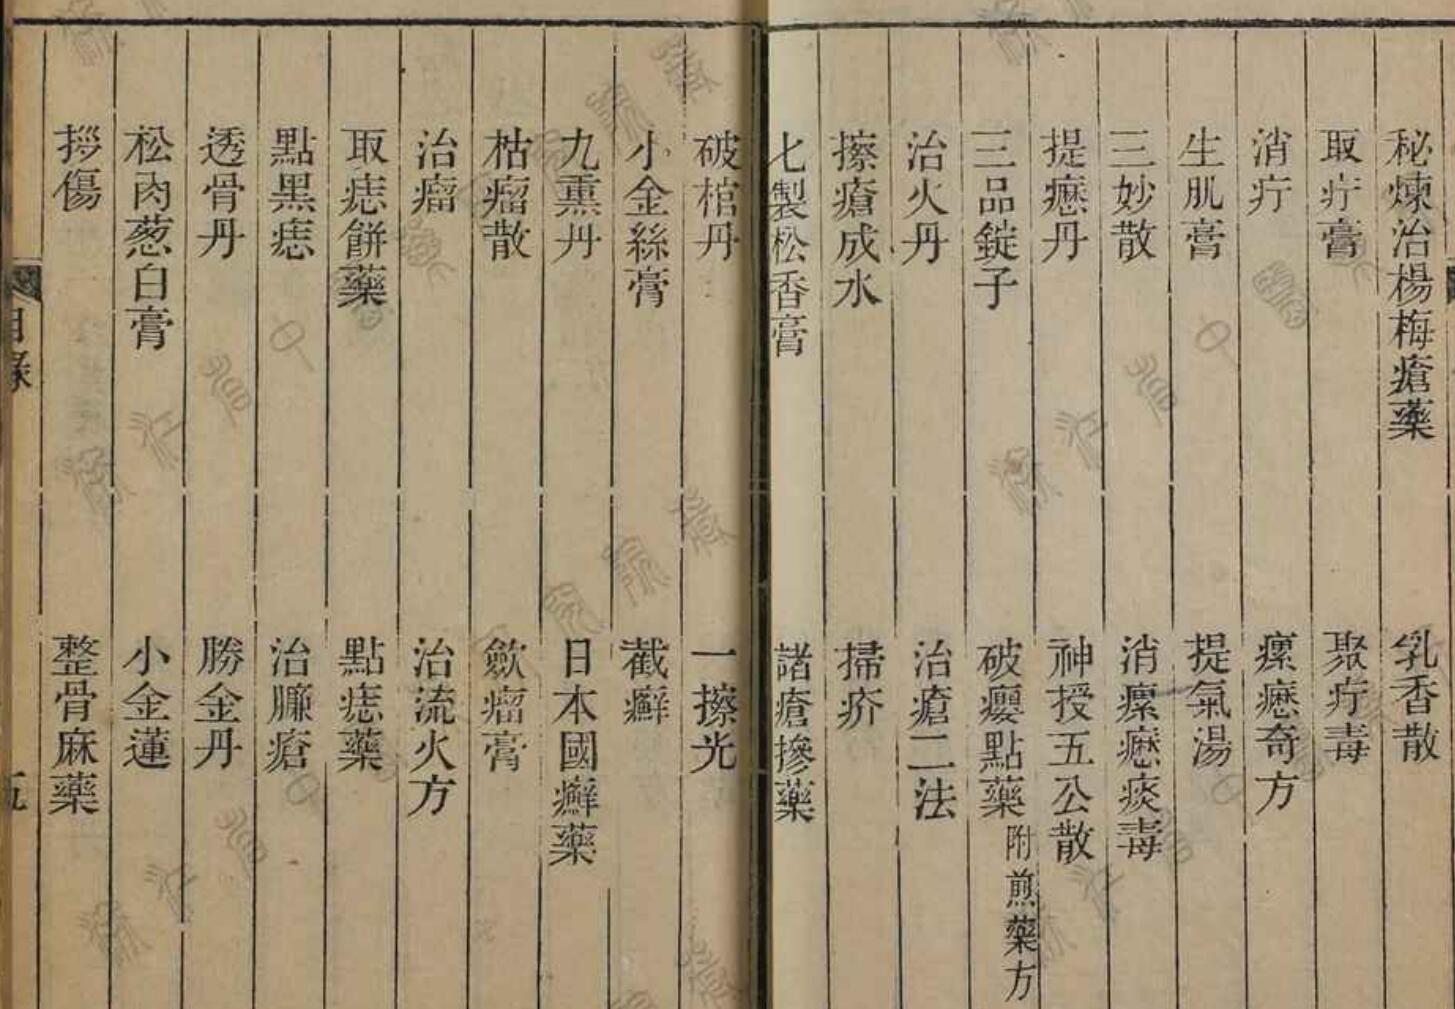 秘煉治楊梅瘡藥
乳香散
取疔膏
聚疔毒
消疔
瘰癧奇方
生肌膏
提氣湯
三妙散
消瘰癧痰毒
提癧丹
神授五公散
三品錠子
破癭點藥附煎藥方
治火丹
治瘡二法
擦瘡成水
掃疥
七製松香膏
諸瘡摻藥
破棺丹
一擦光
小金絲膏
截癬
九熏丹
日本國癬藥
枯瘤散
斂瘤膏
治瘤
治流火方
取痣餅藥
點痣藥
點黑痣
治臁瘡
透骨丹
勝金丹
松肉葱白膏
小金蓮
拶傷
整骨麻藥
目錄
五